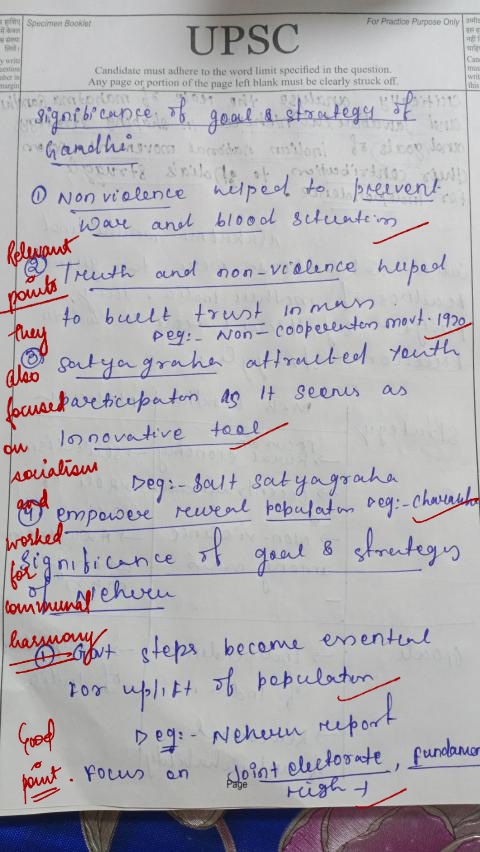 Specimen Booklet
For Practice Purpose Only
UPSC
Candidate must adhere to the word limit specified in the question.
Any page or portion of the page left blank must be clearly struck off.
Significance of goal & strategy of
Gandhi
① Nonviolence helped to prevent
war and blood situation
② Truth and non-violence helped
to built trust in mass
eg:- Non-cooperation movt. 1920
③ Satyagraha attracted youth
participation as it seems as
innovative tool
eg:- Salt Satyagraha
④ empower rural population eg:-
Significance of goal & strategy
of Nehru
① Govt steps become essential
for uplift of population
eg:- Nehru report
Focus on Joint electorate, fundamen
right
Page
Relevant
points
they
also
focused
on
socialism
and
worked
for
communal
harmony
Good
point.